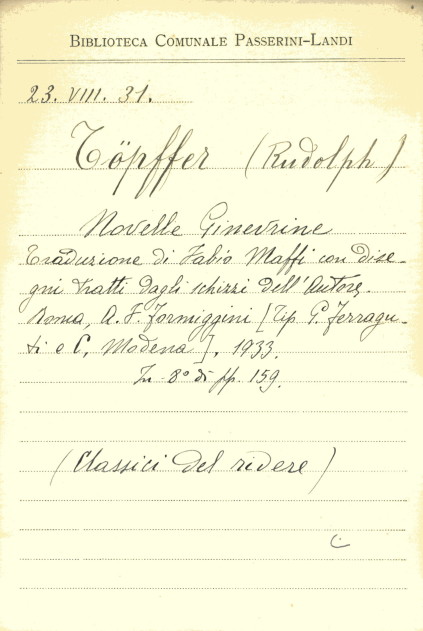 BIBLIOTECA COMUNALE PASSERINI-LANDI
23. VIII. 31.
Töpffer (Rudolph)
Novelle Ginevrine
Traduzione di Fabio Maffi con dise-
gni tratti dagli schizzi dell'Autore.
Roma, A. F. Formiggini [Tip. G. Ferragu-
ti e C, Modena], 1933.
In-8° di pp. 159.
(Classici del ridere)